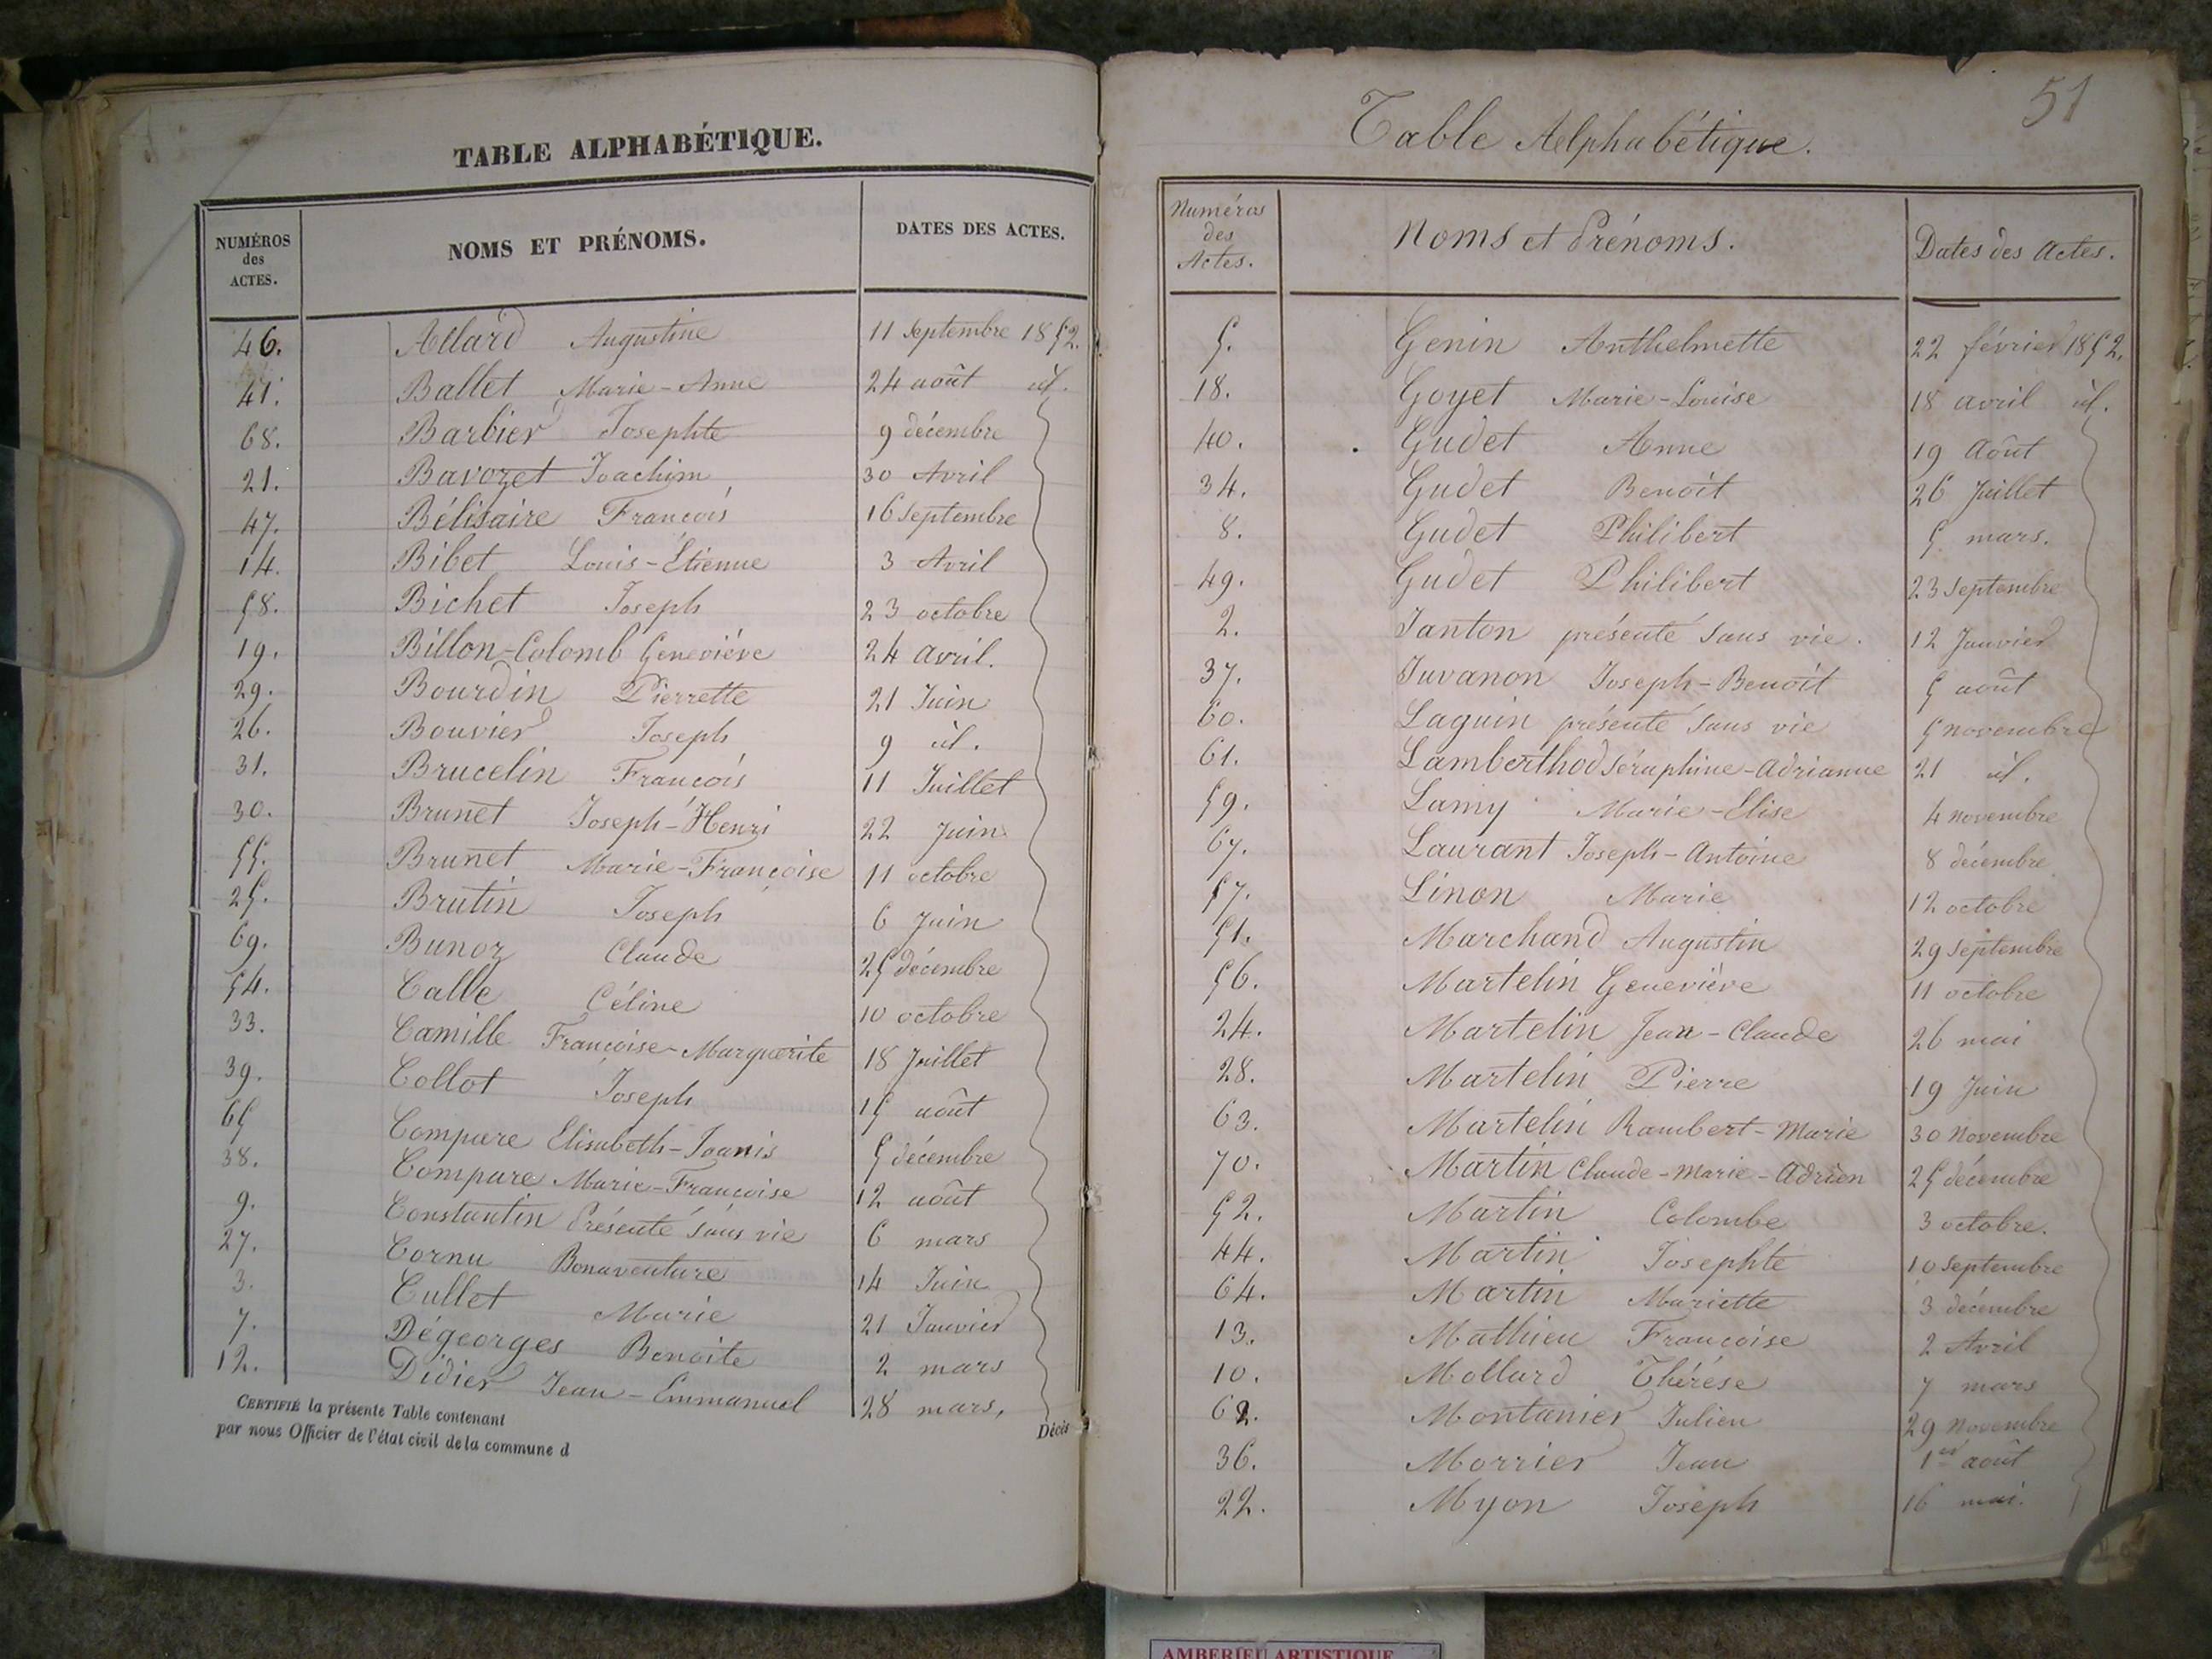 TABLE ALPHABÉTIQUE.
NUMÉROS des ACTES. NOMS ET PRÉNOMS. DATES DES ACTES.
46. Allard Augustine 11 Septembre 1852.
41. Ballet Marie-Anne 24 août id.
68. Barbier Josephte 9 décembre
21. Bavozet Joachim 30 Avril
47. Bélisaire François 16 Septembre
14. Bibet Louis-Étienne 3 Avril
58. Bichet Joseph 23 octobre
19. Billon-Colomb Geneviève 24 avril.
29. Bourdin Pierrette 21 Juin
26. Bouvier Joseph 9 id.
31. Brucelin François 11 Juillet
30. Brunet Joseph-Henri 22 Juin
55. Brunet Marie-Françoise 11 octobre
25. Brutin Joseph 6 Juin
69. Bunoz Claude 25 décembre
54. Calle Céline 10 octobre
33. Camille Françoise-Marguerite 18 Juillet
39. Collot Joseph 15 août
65 Compare Elisabeth-Joanis 5 décembre
38. Compare Marie-Françoise 12 août
9. Constantin Présenté sans vie 6 mars
27. Cornu Bonaventure 14 Juin
3. Cullet Marie 21 Janvier
7. Dégeorges Benoite 2 mars
12. Didier Jean-Emmanuel 28 mars.
CERTIFIÉ la présente Table contenant
par nous Officier de l'état civil de la commune d
Décès
51
Table Alphabétique.
Numéros des Actes. Noms et Prénoms. Dates des Actes.
5. Genin Anthelmette 22 février 1852.
18. Goyet Marie-Louise 18 avril id.
40. Gudet Anne 19 Août
34. Gudet Benoit 26 Juillet
8. Gudet Philibert 5 mars.
49. Gudet Philibert 23 Septembre
2. Janton présenté sans vie. 12 Janvier
37. Juvanon Joseph-Benoît 5 août
60. Laguin présenté sans vie 5 novembre
61. Lamberthod Séraphine-Adrianne 21 id.
59. Lamy Marie-Elise 4 novembre
67. Laurant Joseph-Antoine 8 décembre
57. Linon Marie 12 octobre
51. Marchand Augustin 29 Septembre
56. Martelin Geneviève 11 octobre
24. Martelin Jean-Claude 26 mai
28. Martelin Pierre 19 Juin
63. Martelin Rambert-Marie 30 Novembre
70. Martin Claude-Marie-Adrien 25 décembre
52. Martin Colombe 3 octobre.
44. Martin Josephte 10 Septembre
64. Martin Mariette 3 décembre
13. Mathieu Françoise 2 Avril
10. Mollard Thérèse 7 mars
62. Montanier Julien 29 Novembre
36. Morrier Jean 1er août
22. Myon Joseph 16 mai.
AMBERIEU ARTISTIQUE